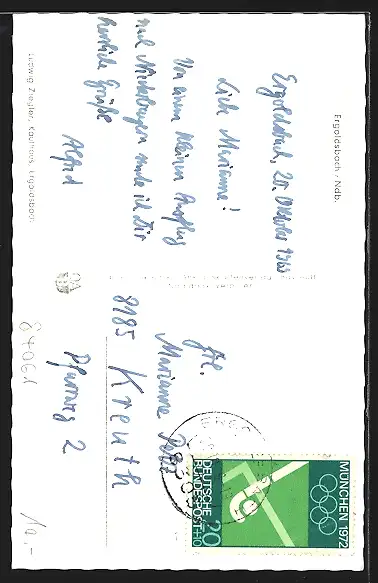 Ergoldsbach / Ndb.
Ergoldsbach, 25. Oktober 1969
Liebe Marianne!
Von einem kleinen Ausflug
nach Niederbayern sende ich Dir
herzliche Grüße
Alfred
Ludwig Ziegler, Kaufhaus, Ergoldsbach
Frl.
Marianne
8185 Kreuth
Pfarrweg 2
MÜNCHEN 1972
DEUTSCHE
BUNDESPOST
20
+10
84061
10,-